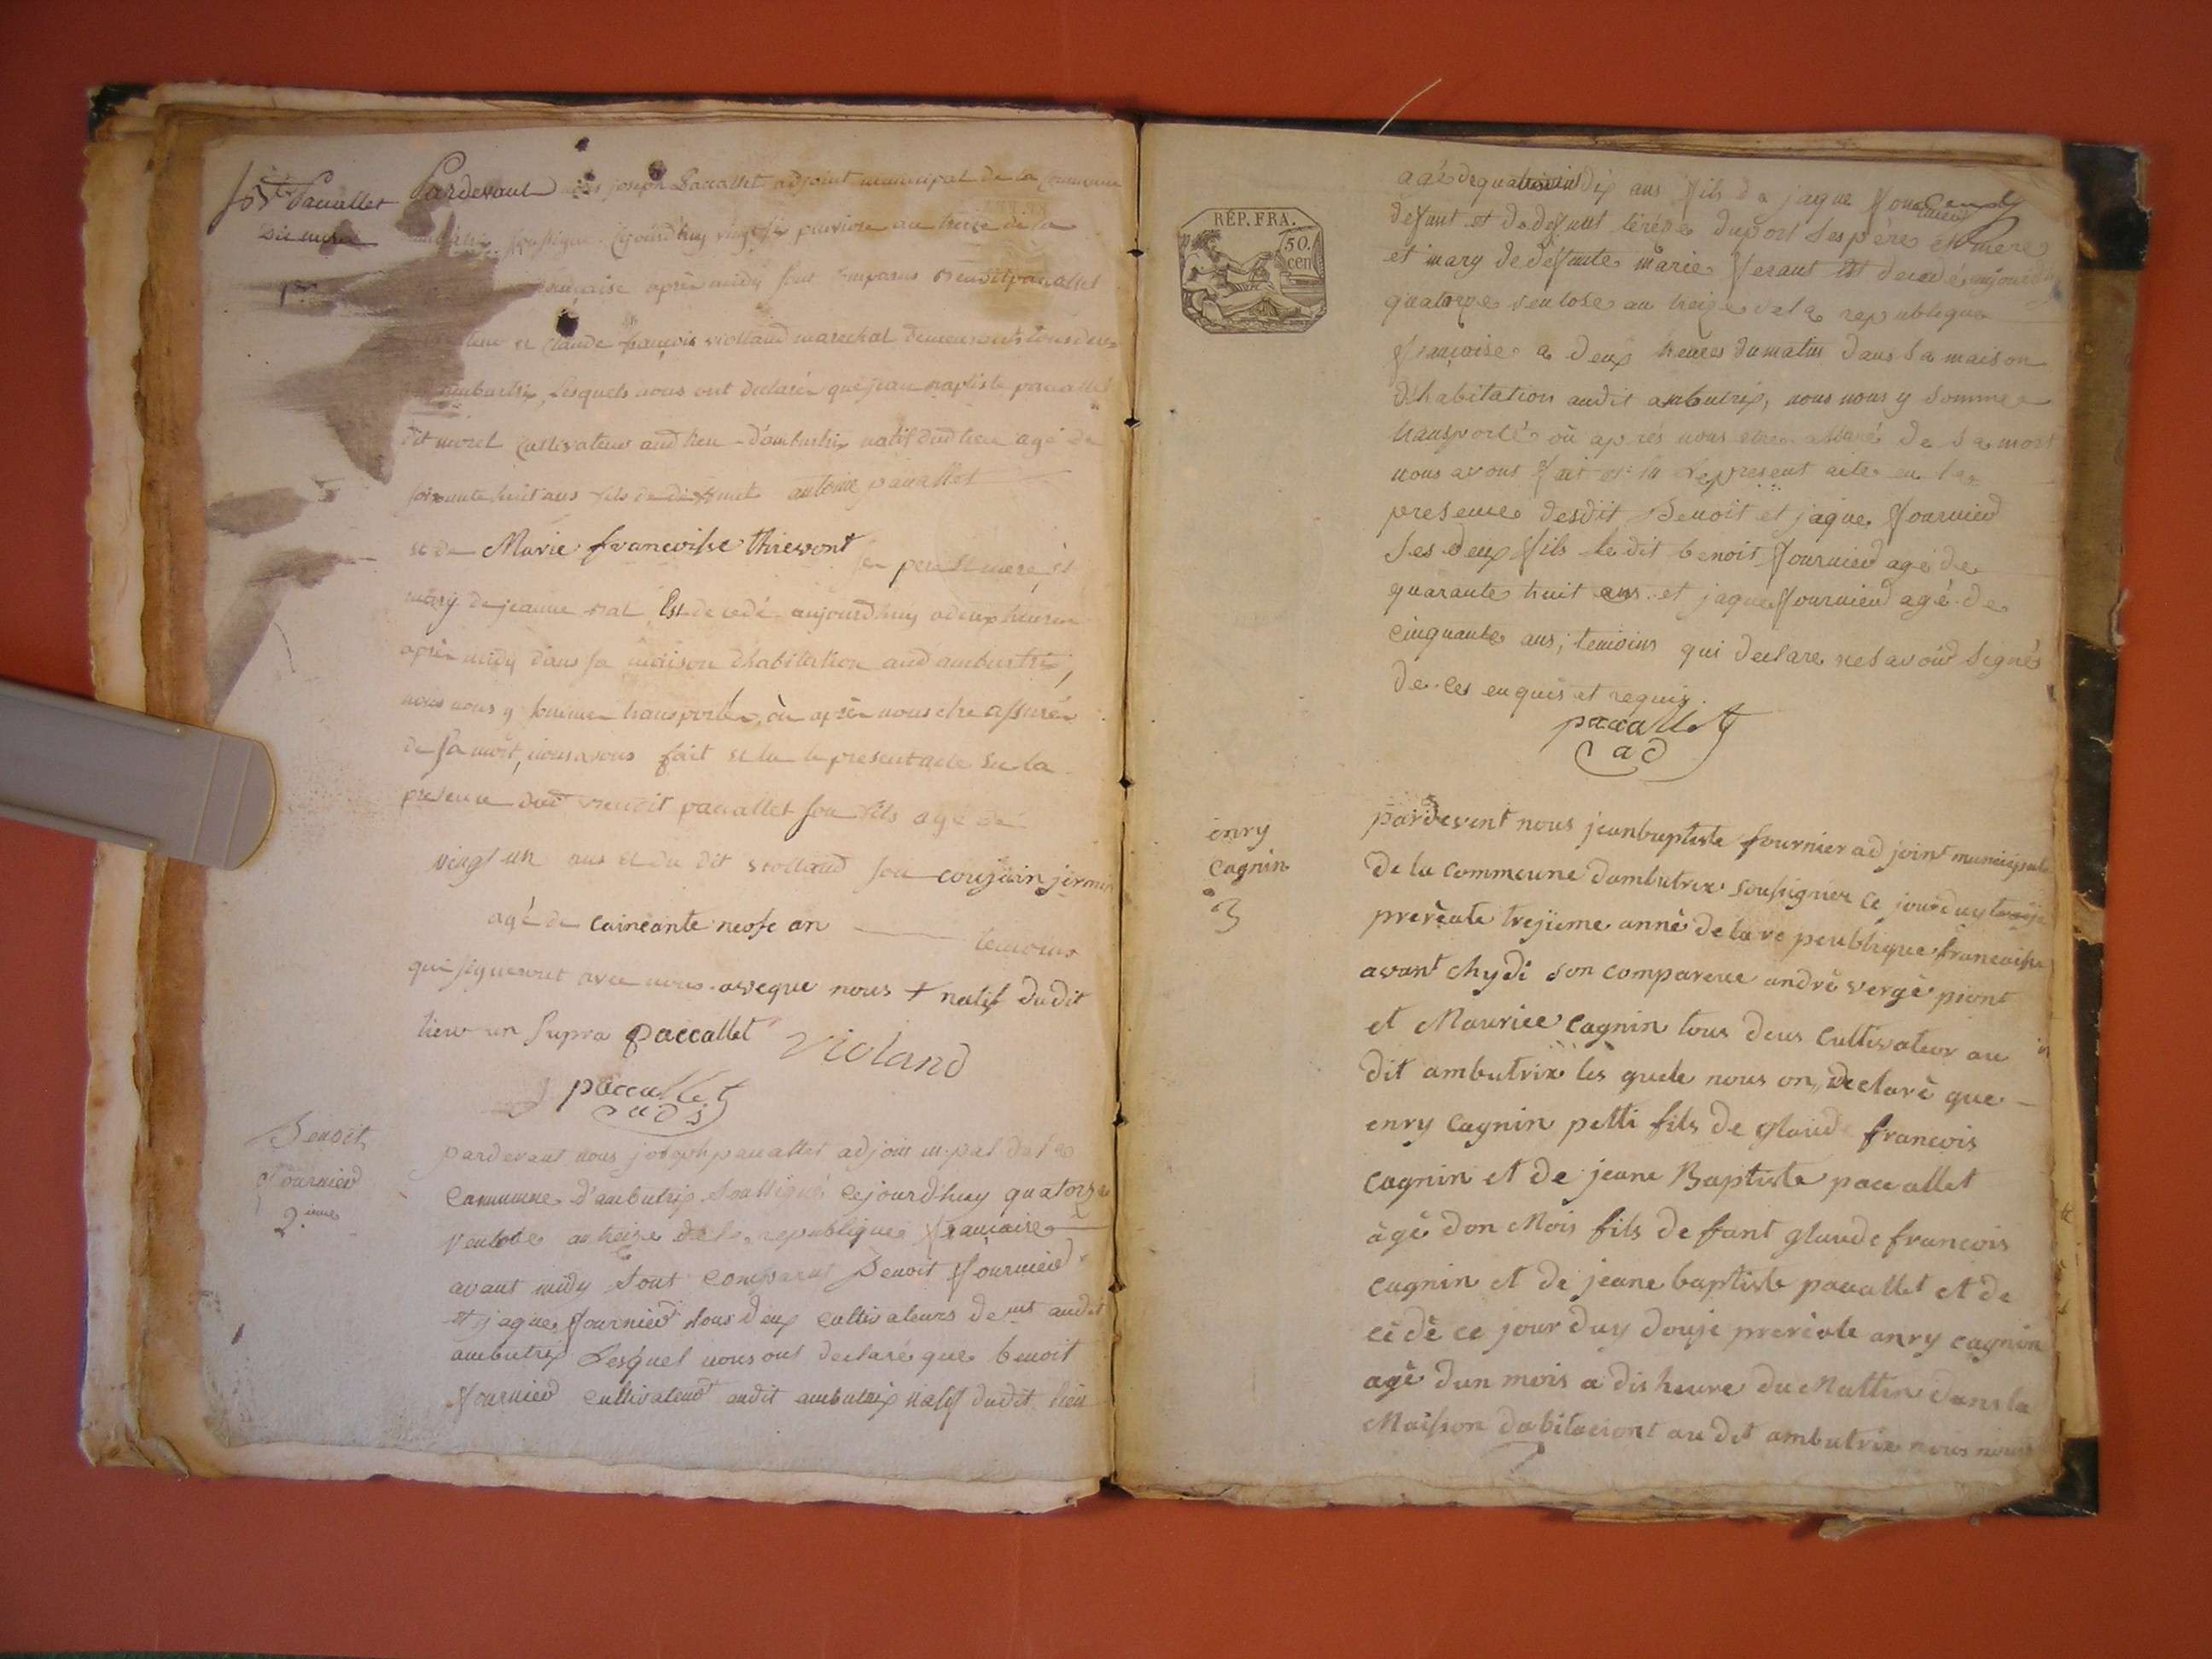 Jh Bte Paccallet
Dit morel
Pardevant nous joseph Paccallet adjoint municipal de la commune
soussigné Cejourdhuy vingt six pluviose an treize de la
française après midy sont comparus Benoit paccallet
et Claude françois viollaud marechal demeurants tous deux
ambutrix, Lesquels nous ont declaré que jean Baptiste paccallet
dit morel Cultivateur aud lieu d'ambutrix natif dud lieu agé de
soixante huit ans fils de deffunct antoine paccallet
et de Marie francoisse thirevont
ses pere et mere, et
mary de jeanne Est decedé aujourdhuy a deux heures
après midy dans sa maison dhabitation aud ambutrix,
nous nous y sommes transportés, où après nous etre assurés
de sa mort, nous avons fait et lu le present acte en la
presence dud Benoit paccallet son fils agé de
vingt un ans et du dit viollaud son coujain jermin
agé de caincante neofe an temoins
qui signeront avec nous aveque nous + natif dudit
lieu un supra paccallet Violand
paccallet
adj
Benoit
fournier
2.ieme
pardevant nous joseph paccallet adjoin m.pal de la
Commune d'ambutrix soussigné cejourd'huy quatorze
ventose an treize de la republique française
avant midy sont comparut Benoit fournier
et jaque fournier tous deux cultivateurs de.nt audit
ambutrix Lesquel nous ont declaré que benoit
fournier cultivateur audit ambutrix natif dudit lieu
RÉP. FRA.
50.
cen
agé de quatrevint dix ans fils de jaque fournier
defunt et de defunt teréze duport ses père et mere
et mary de defunte marie feraut est decedé aujourdhuy
quatorze ventose an treize de la republique
françoise a deux heures du matin dans sa maison
d'habitation audit ambutrix, nous nous y sommes
transporté où aprés nous etre assuré de sa mort
nous avons fait et lu le present acte en la
presence desdit Benoit et jaque fournier
ses deux fils le dit benoit fournier agé de
quarante huit ans et jaque fournier agé de
cinquante ans; temoins qui declare ne savoir signés
de ces enquis et requis.
paccallet
ad
enry
cagnin
3
pardevent nous jeanbaptiste fournier ad joint municipale
de la commeune dambutrix soussignier ce jourduy
prereale trejieme anné de la re peublique francaisse
avant mydi son compareue andré vergé piont
et Maurice cagnin tous deus cultivateur au
dit ambutrix les quele nous on declaré que
enry cagnin petti fils de glaude francois
cagnin et de jeane Baptiste paccallet
àgé don Mois fils de fant glaude francois
cagnin et de jeane baptiste paccallet et de
cèdé ce jour duy douje prereale anry cagnin
agé dun mois a dis heure du Mattin dans la
Maisson dabitaciont au dit ambutrix nous nous